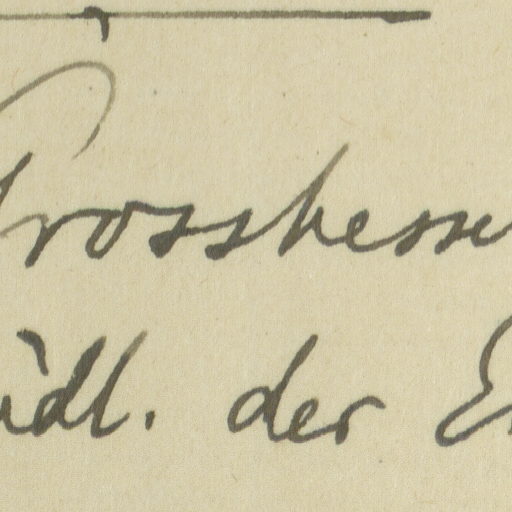 Grosshesse
üdl. der E